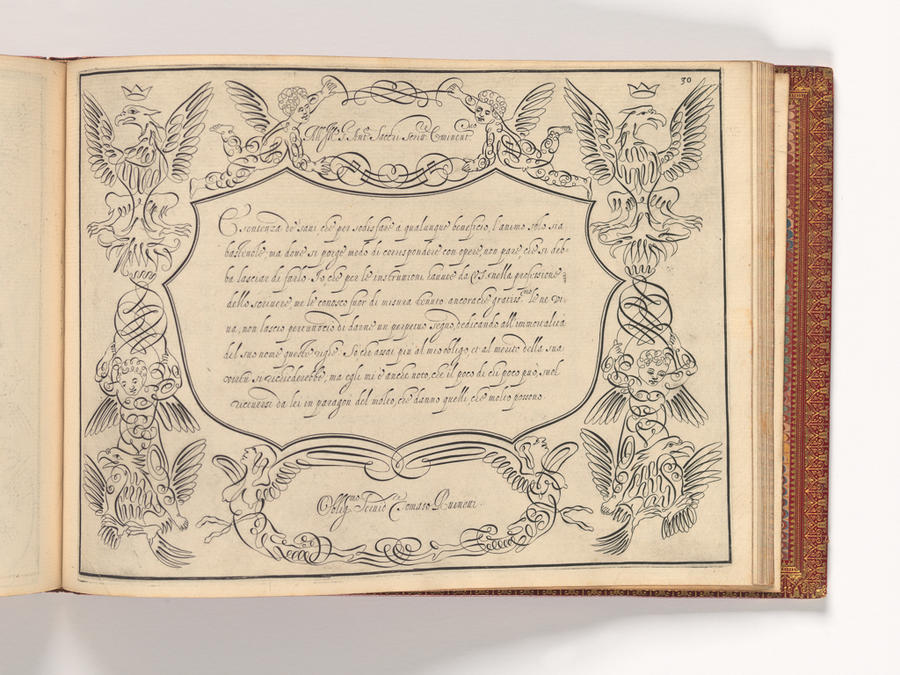 30
All Ill.re S.r Ant.o Sacchi Scrit.re Eminent.mo
È sentenza de' Saui, che per sodisfare a qualunque beneficio, l'animo solo sia
basteuole; ma doue si porge modo di corrispondere con opere, non pare, che si deb=
ba lasciar di farlo. Io, che per le instruzioni hauute da V.S. nella professione
dello scriuere, me le conosco fuor di misura tenuto ancorache gratis.mo le ne vi=
ua, non lascio per tuttociò di darne un perpetuo segno, dedicando all'immortalità
del suo nome queste righe. Sò che assai più al mio obligo, et al merito della sua
virtù si richiederebbe, ma egli mi è anche noto, che il poco di chi poco può, suol
riceuersi da lei in paragon del molto, che danno quelli, che molto possono.
Oblig.mo Seruit.e Tomaso Ruinetti.